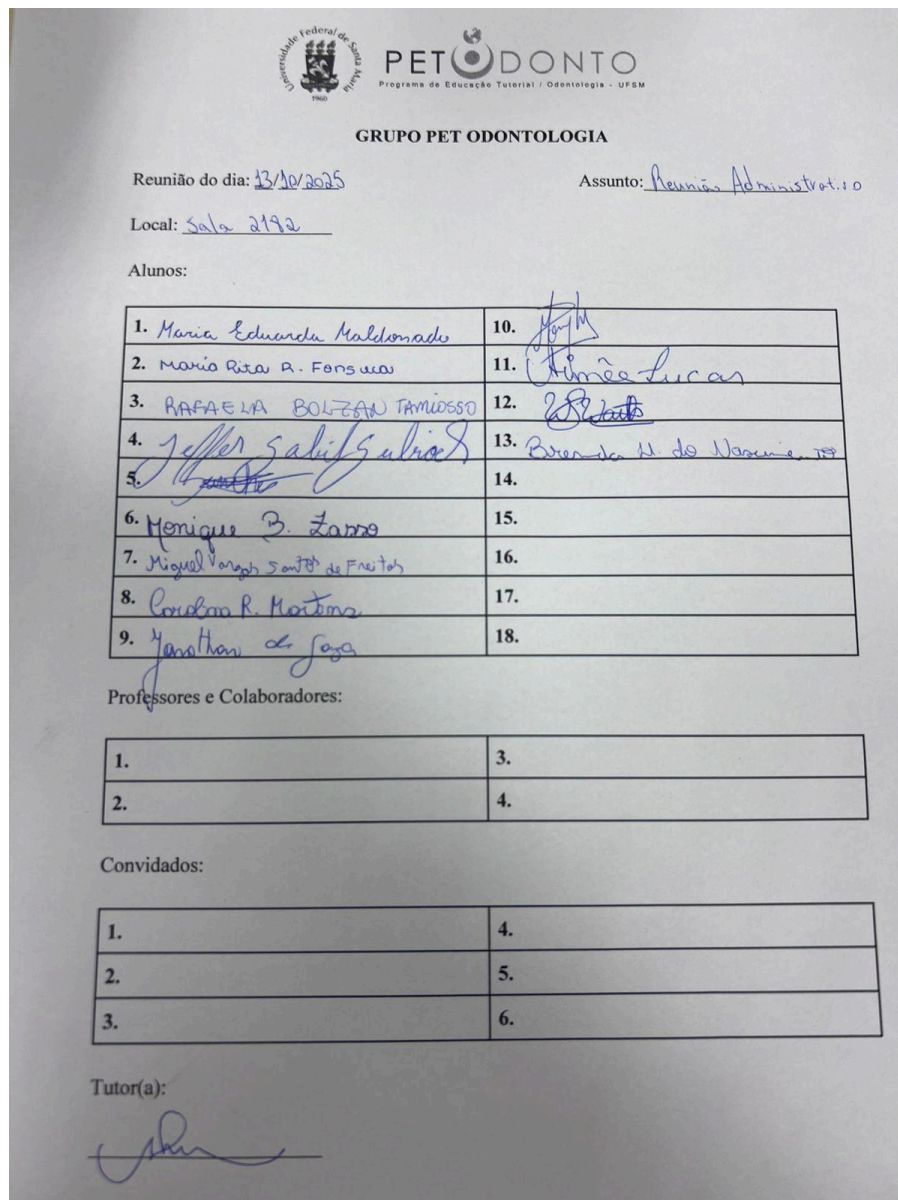 Universidade Federal de Santa Maria
1960
PET ODONTO
Programa de Educação Tutorial / Odontologia - UFSM
GRUPO PET ODONTOLOGIA
Reunião do dia: 13/10/2025 Assunto: Reunião Administrativo
Local: Sala 2182
Alunos:
1. Maria Eduarda Maldonado 10.
2. Maria Rita R. Fonseca 11. Aimêe Lucas
3. RAFAELA BOLZAN TAMIOSSO 12.
4. 13. Brenda N. do Nascimento
5. 14.
6. Monique B. Zasso 15.
7. Miguel Vargas Santos de Freitas 16.
8. Carolina R. Martins 17.
9. Jonathan de Souza 18.
Professores e Colaboradores:
1. 3.
2. 4.
Convidados:
1. 4.
2. 5.
3. 6.
Tutor(a):